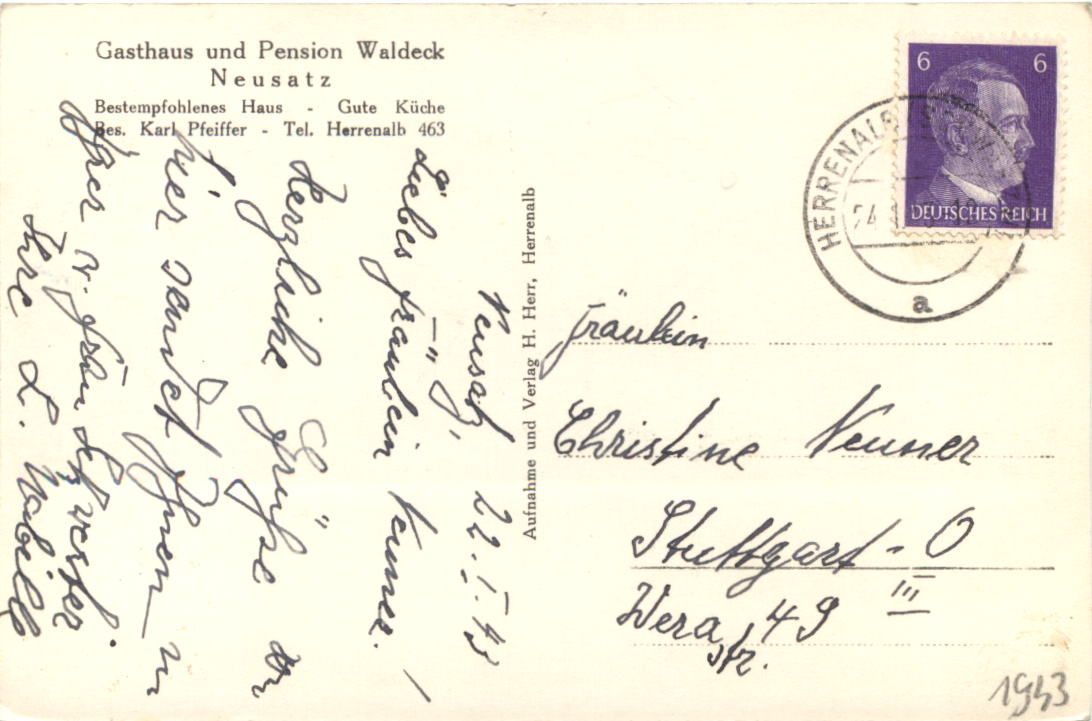 Gasthaus und Pension Waldeck
Neusatz
Bestempfohlenes Haus - Gute Küche
Bes. Karl Pfeiffer - Tel. Herrenalb 463
Neusatz, 22. I. 43
Liebes Fräulein Neuner!
Herzliche Grüße von
hier sendet Ihnen u
Ihrer Frau Schwester
Ihre L.
Aufnahme und Verlag H. Herr, Herrenalb
6 6
DEUTSCHES REICH
HERRENALB
24
a
Fräulein
Christine Neuner
Stuttgart-O
Wera str. 49 III
1943